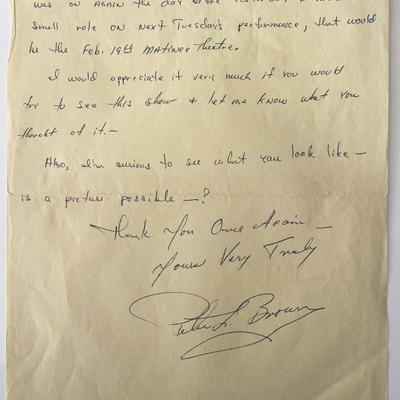 was on AGAIN the day
small role on Next Tuesday's performance, that would
be the Feb. 19th MATinee Theatre.
I would appreciate it very much if you would
try to see this show & let me know what you
thought of it.—
Also, I'm curious to see what you look like —
is a picture possible —?
Thank You Once Again —
Yours Very Truly
Peter L. Brown